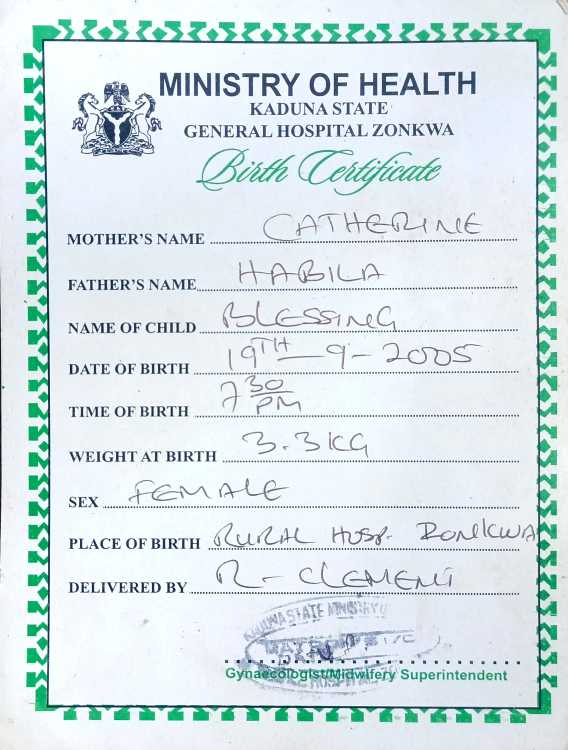 MINISTRY OF HEALTH
KADUNA STATE
GENERAL HOSPITAL ZONKWA
Birth Certificate
MOTHER'S NAME CATHERINE
FATHER'S NAME HABILA
NAME OF CHILD BLESSING
DATE OF BIRTH 19TH-9-2005
TIME OF BIRTH 7 30 PM
WEIGHT AT BIRTH 3.3KG
SEX FEMALE
PLACE OF BIRTH RURAL HOSP. ZONKWA
DELIVERED BY R-CLEMENT
KADUNA STATE MINISTRY
Gynaecologist/Midwifery Superintendent